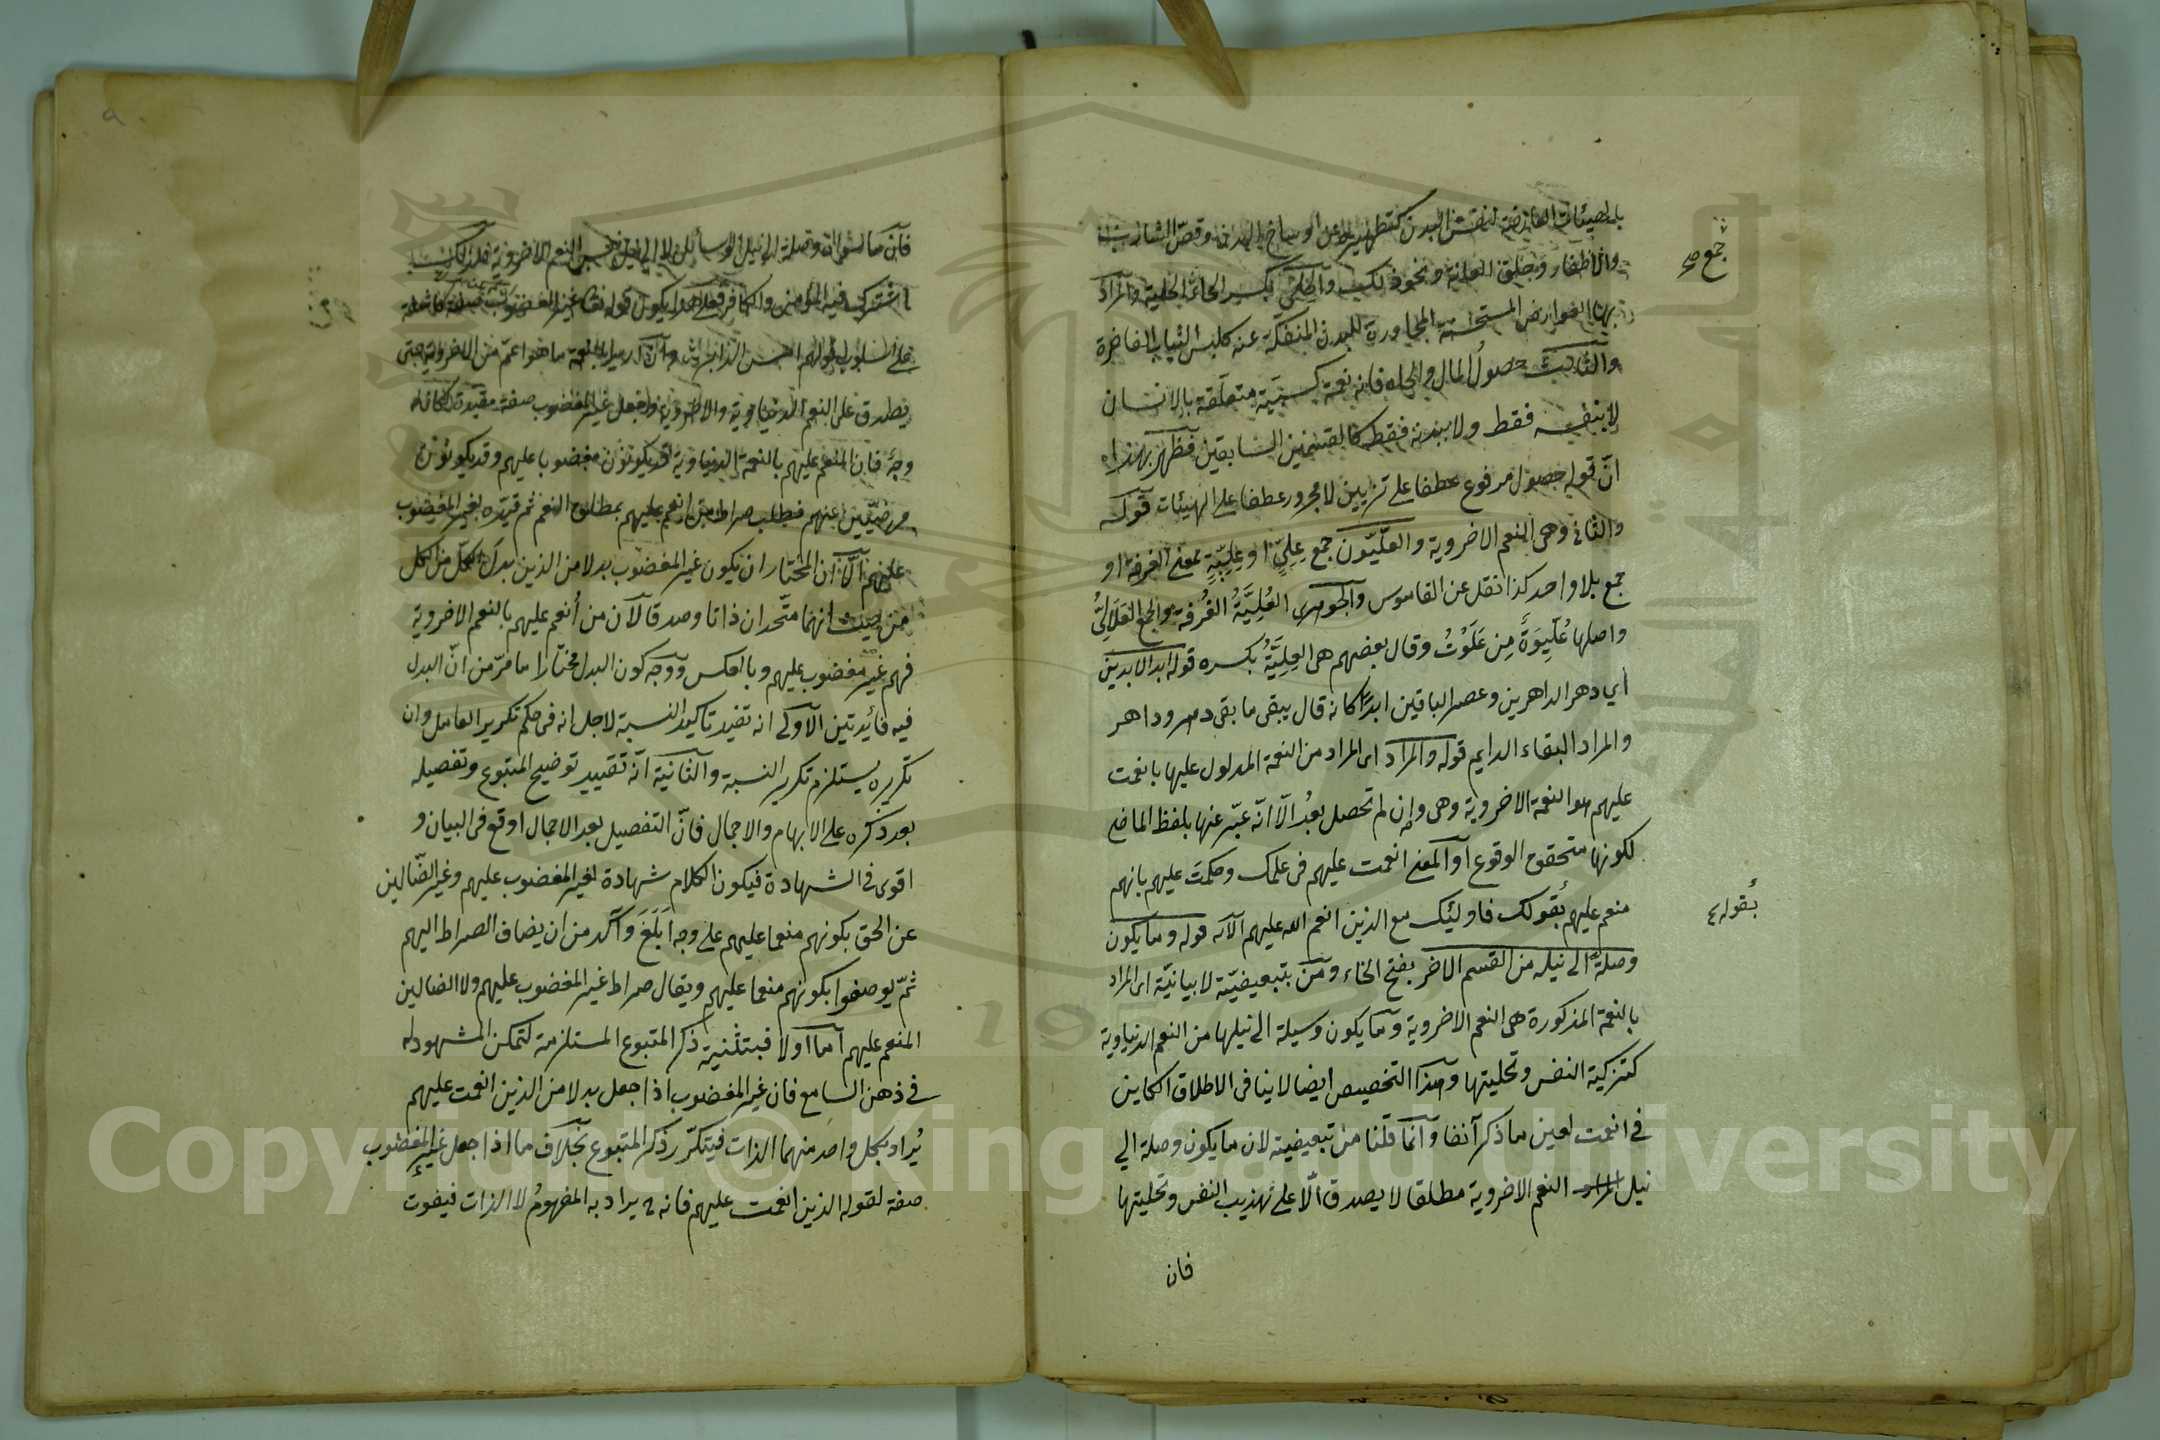 بالهيئات العارضة لنفس البدن كتطهيره عن اوساخ البدن وقص الشارب
والاظفار وحلق العانة ونحو ذلك والحلي بكسر الحاء الحلية والمراد
بها العوارض المستحسنة المجاورة للبدن المنفكة عنه كلبس الثياب الفاخرة
والثالث حصول المال والجاه فانه نعمة كسبية متعلقة بالانسان
لا بنفسه فقط ولا ببدنه فقط كالقسمين السابقين فظهر بهذا
انّ قوله حصول مرفوع عطفا على تزيين لا مجرور عطفا على الهيئات قوله
والثاني وهى النعم الاخروية والعلّيّون جمع عِلِّيٍّ او عِلِّيَّةٍ بمعنى الغرفة او
جمع بلا واحد كذا نقل عن القاموس والجوهرى العُلِّيَّةُ الغُرفة والجمع العَلَالِيُّ
واصلها عُلِّيوَةٌ مِن عَلَوْتُ وقال بعضهم هى العِلِّيَّةُ بكسره قوله ابد الابدين
أي دهر الداهرين وعصر الباقين ابدًا كانه قال يبقى ما بقى دهر وداهر
والمراد البقاء الدايم قوله والمراد اى المراد من النعمة المدلول عليها بانعمت
عليهم هو النعمة الاخروية وهى وإن لم تحصل بعدُ الّا انّه عبّر عنها بلفظ الماضى
لكونها متحقق الوقوع أو المعنى انعمت عليهم فى علمك وحكمتَ عليهم بانهم
منعم عليهم بقولك فاولئك مع الذين انعم الله عليهم الآية قوله وما يكون
وصلة الى نيله من القسم الاخر بفتح الخاء ومن تبعيضيّة لا بيانيّة اى المراد
بالنعمة المذكورة هى النعم الاخروية وما يكون وسيلة الى نيلها من النعم الدنياوية
كتزكية النفس وتحليتها وهذا التخصيص ايضا لا ينافى الاطلاق الكاين
فى انعمت لعين ما ذكر آنفا وانّما قلنا من تبعيضية لان ما يكون وصلة الي
نيل النعم الاخروية مطلقا لا يصدق الّا على تهذيب النفس وتحليتها
فان
جمع
بقوله
فانّ ما سواه وصلة الى نيل
اشترك فيه المؤمن والكافر فعلى هذا يكون قوله تعالى غير المغضوب
يصدق على النعم الدنياوية والاخروية وجعل غير المغضوب صفة مقيدة لكان له
وجهٌ فان المنعم عليهم بالنعمة الدنياوية قد يكونون مغضوبا عليهم وقد يكونون
مرضيّين عنهم فطلب صراط من انعم عليهم بمطلق النعم ثم قيّده بغير المغضوب
عليهم الّا ان المختار ان يكون غير المغضوب بدلا من الذين بدل الكل من الكل
من حيث انهما متّحدان ذاتا وصدقا لآن من أُنعم عليهم بالنعم الاخروية
فهم غير مغضوب عليهم وبالعكس ووجه كون البدل مختارا ما مرّ من انّ البدل
فيه فائدتين الاولى انه تفيد تاكيد النسبة لاجل انه فى حكم تكرير العامل وان
تكريره يستلزم تكرير النسبة والثانية انّه تفييد توضيح المتبوع وتفصيله
بعد ذكره على الابهام والاجمال فانّ التفصيل بعد الاجمال اوقع فى البيان و
اقوى فى الشهادة فيكون الكلام شهادة لغير المغضوب عليهم وغير الضّالين
عن الحق بكونهم منعما عليهم على وجه ابلغَ وآكد من ان يضاف الصراط اليهم
ثمّ يوصفوا بكونهم منعما عليهم ويقال صراط غير المغضوب عليهم ولا الضالين
المنعم عليهم اما اولا فبتثنية ذكر المتبوع المستلزمة لتمكن المشهود له
فى ذهن السامع فان غير المغضوب اذا جعل بدلا من الذين انعمت عليهم
يُراد بكل واحد منهما الذات فيتكرّر ذكر المتبوع بخلاف ما اذا جعل غير المغضوب
صفة لقوله الذين انعمت عليهم فانه ح يراد به المفهومُ لا الذات فيفوت
٩
Copyright © King Saud University
1957